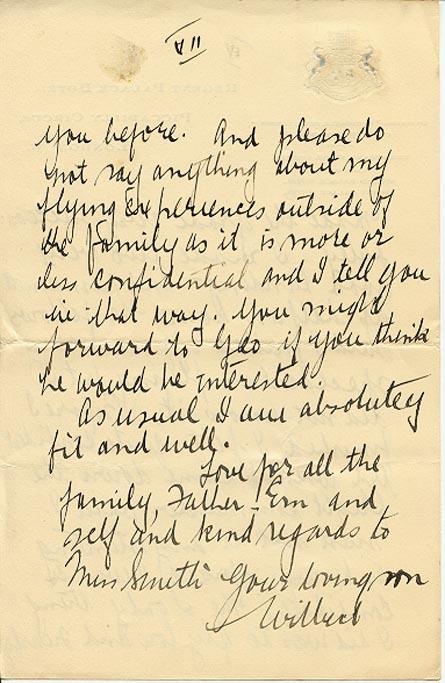 VII
you before. And please do
not say anything about my
flying experiences outside of
the family as it is more or
less confidential and I tell you
in that way. You might
forward to Geo if you think
he would be interested.
As usual I am absolutely
fit and well.
Love for all the
family, Father - Ern and
self and kind regards to
Miss Smith Your loving son
Wilbert
REGENT PALACE HOTEL
PICCADILLY CIRCUS